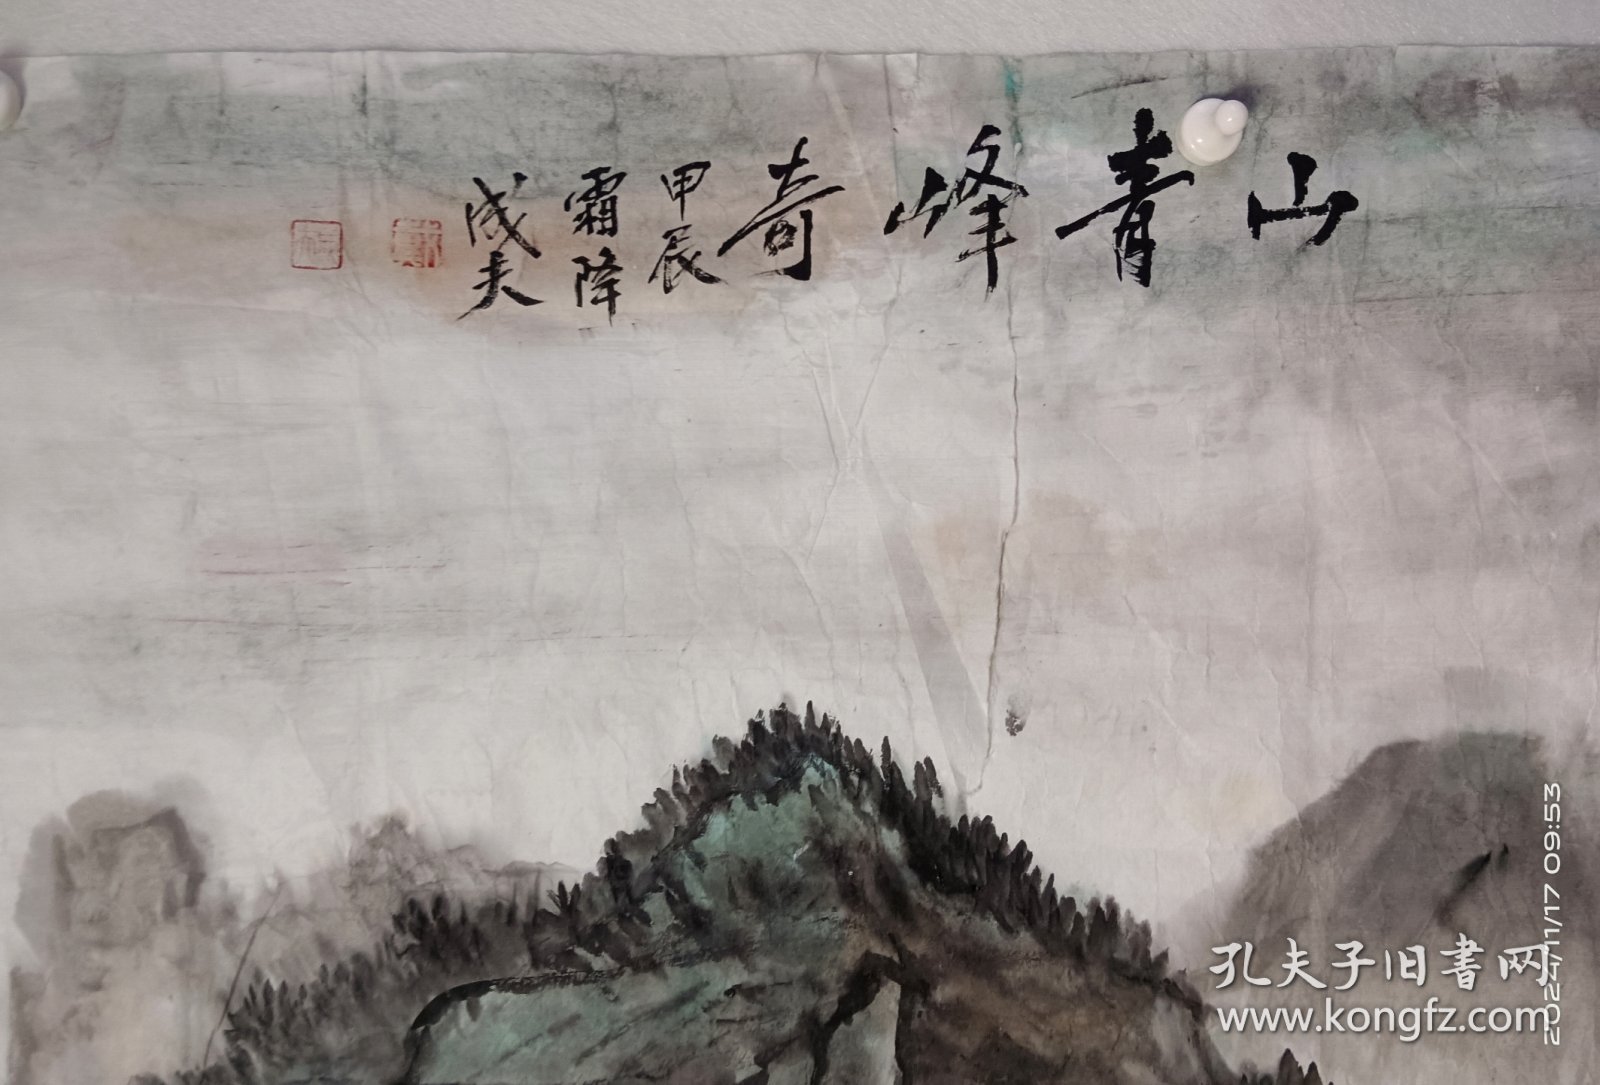 山青峰奇
甲辰
霜降
成夫
孔夫子旧书网
www.kongfz.com
2024/11/17 09:53